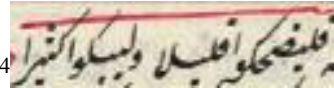 فليضحكوا قليلا وليبكوا كثيرا
4